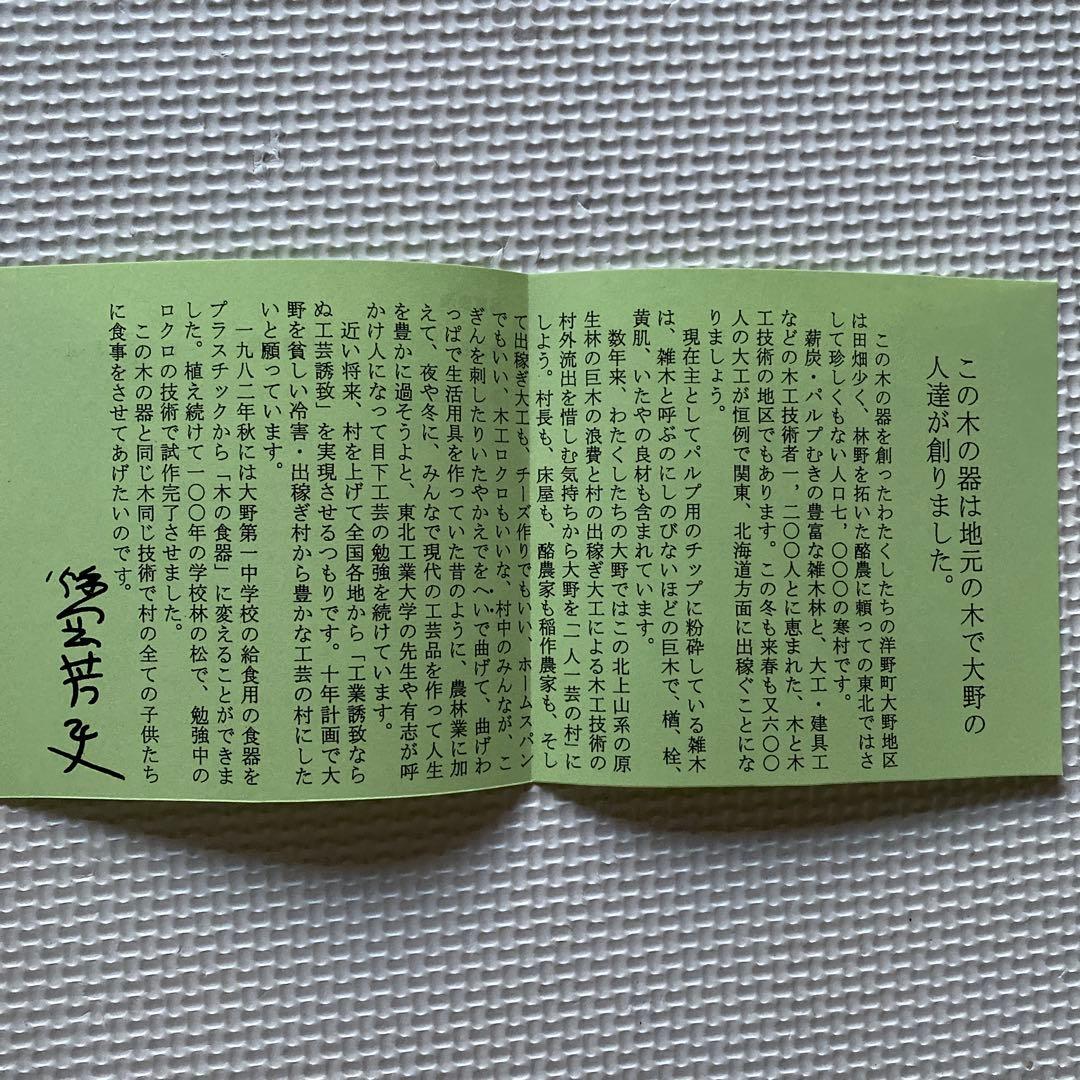 この木の器は地元の木で大野の
人達が創りました。
この木の器を創ったわたくしたちの洋野町大野地区
は田畑少く、林野を拓いた酪農に頼っての東北ではさ
して珍しくもない人口七，〇〇〇の寒村です。
薪炭・パルプむきの豊富な雑木林と、大工・建具工
などの木工技術者一，二〇〇人とに恵まれた、木と木
工技術の地区でもあります。この冬も来春も又六〇〇
人の大工が恒例で関東、北海道方面に出稼ぐことにな
りましょう。
現在主としてパルプ用のチップに粉砕している雑木
は、雑木と呼ぶのにしのびないほどの巨木で、楢、栓、
黄肌、いたやの良材も含まれています。
数年来、わたくしたちの大野ではこの北上山系の原
生林の巨木の浪費と村の出稼ぎ大工による木工技術の
村外流出を惜しむ気持ちから大野を「一人一芸の村」に
しよう。村長も、床屋も、酪農家も稲作農家も、そし
て出稼ぎ大工も、チーズ作りでもいい、ホームスパン
でもいい、木工ロクロもいいな、村中のみんなが、こ
ぎんを刺したりいたやかえでをへいで曲げて、曲げわ
っぱで生活用具を作っていた昔のように、農林業に加
えて、夜や冬に、みんなで現代の工芸品を作って人生
を豊かに過そうよと、東北工業大学の先生や有志が呼
かけ人になって目下工芸の勉強を続けています。
近い将来、村を上げて全国各地から「工業誘致なら
ぬ工芸誘致」を実現させるつもりです。十年計画で大
野を貧しい冷害・出稼ぎ村から豊かな工芸の村にした
いと願っています。
一九八二年秋には大野第一中学校の給食用の食器を
プラスチックから「木の食器」に変えることができま
した。植え続けて一〇〇年の学校林の松で、勉強中の
ロクロの技術で試作完了させました。
この木の器と同じ木同じ技術で村の全ての子供たち
に食事をさせてあげたいのです。